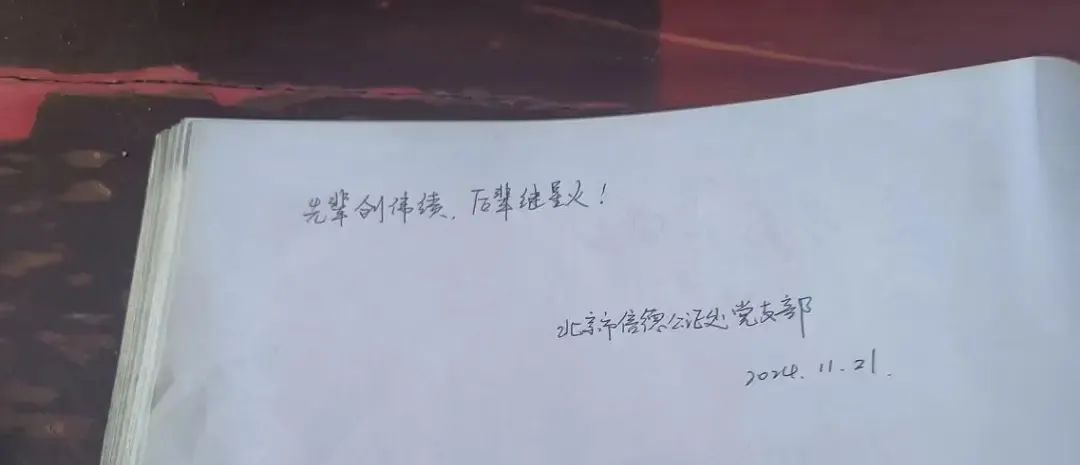 先辈创伟绩，后辈继星火！
北京市信德公证处党支部
2024.11.21.